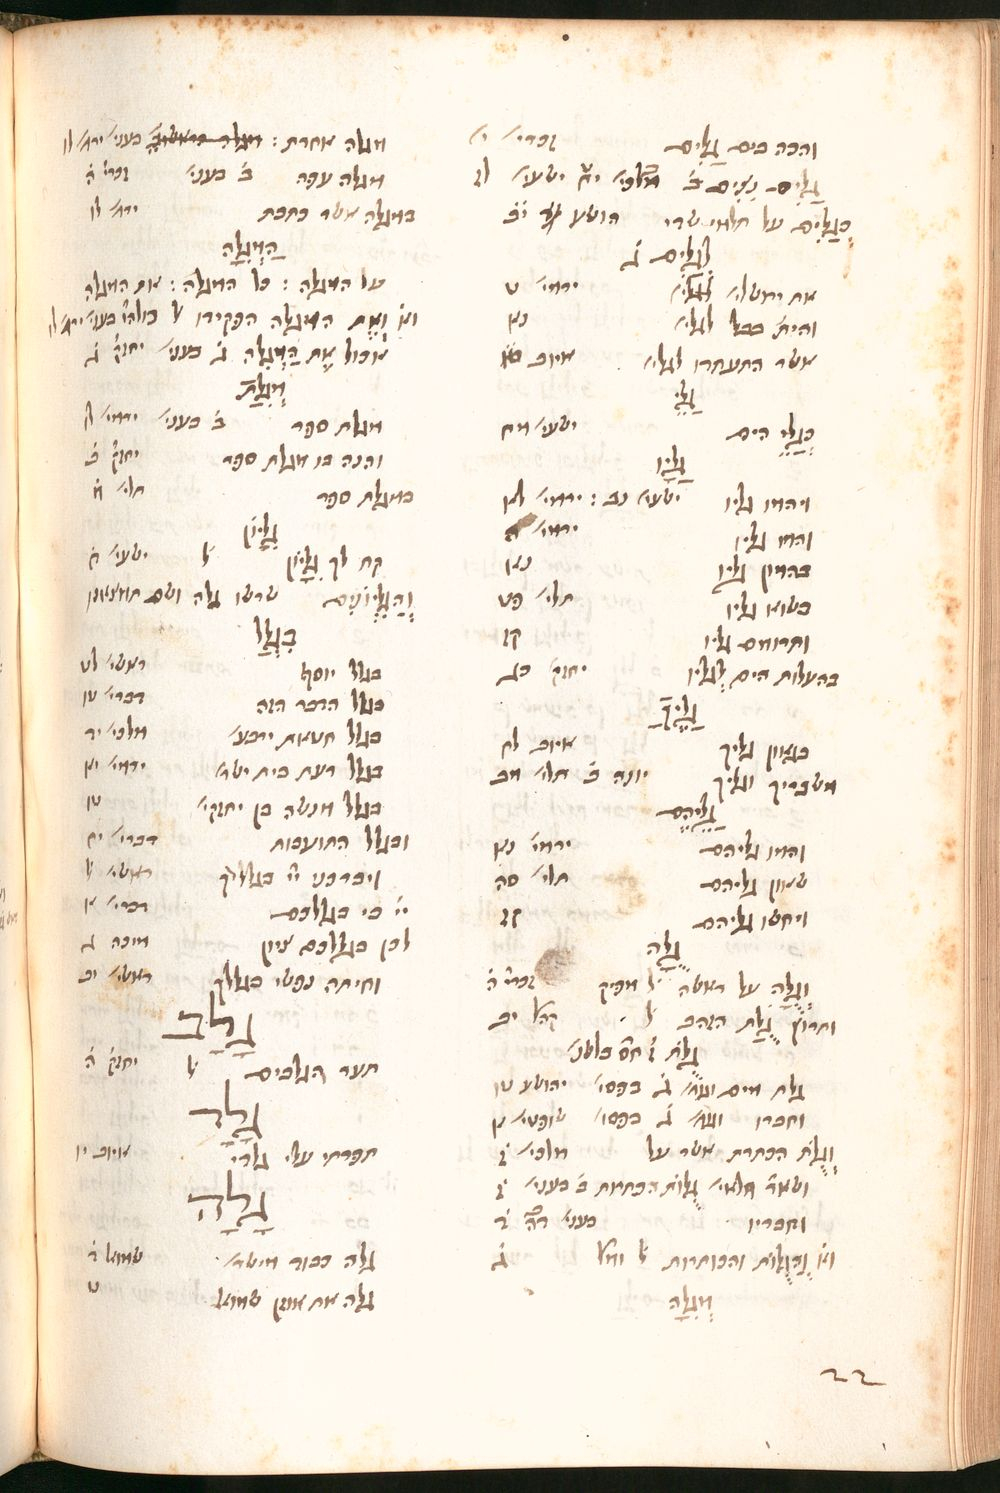 והכה בים גַלִים זכרי' י'
גַלִים נִצִים ב' מלכי' יח ישעי' לז
כְגַלִים על תלמי שדי הושע יב
לְגַלִים ג
את ירושלי' לְגַלִי' ירמי' ט
והית' בבל לגלי' נא
אשר התעתדו לגלי' איוב טו
גַלֵי
כְגַלֵי הים ישעי' מח
גַלָיו
ויהמו גליו ישעי' נב : ירמי' לא
והמו גליו ירמי' ה
בהמון גליו נא
בשוא גליו תלי' פט
ותרומם גליו קז
כהעלות הים לְגליו יחזק' כו
גַלֶיךָ
בגאון גליך איוב לח
משבריך וגליך יונה ב תלי' מב
גַלֵיהֶם
והמו גליהם ירמי' נא
שאון גליהם תלי' סה
ויחשו גליהם קז
גֻלָה
וְגֻלָה על ראשה ל' מפיק זכרי' ה
ותרוץ גֻלַת הזהב ל' קהל' יב
גֻלֹת
גלת מים ג בפסו' יהושע טו
וחברו ג בפסו' שופטי' א
וְגֻלֹת הכתרת אשר על מלכי' ז
ושאר' גֻלות הכתרות ב בעני' ז
וחבריו בעני' דה' ד
וא' וְהַגֻלות והכותרות ל' ומל' ג
מְגִלָה
מגלה אחרת : בעני' ירמ' לו
מגלה עפה ב בעני' זכרי' ה
במגלה אשר כתבת ירמ' לו
הַמְגִלָה
על המגלה : כל המגלה : את המגלה
וא' וְאֶת המגלה הפקידו ל' כולהו בעני' ירמ' לו
אכול אֶת הַמְגִלָה ג בעני' יחזק' ג
מְגִלַת
מגלת ספר ב בעני' ירמי' לו
והנה בו מגלת ספר יחזק' ב
במגלת ספר תלי' מ
גִלָיוֹן
קח לך גִלָיוֹן ל' ישעי' ח
וְהַגִלְיוֹנִים שרשו גלה ושם תמצאנו
בִגְלַל
בגלל יוסף ראשי' לט
בגלל הדבר הזה דברי' טו
בגלל חטאות ירבע' מלכי' יד
בגלל רעת בית ישר' ירמי' יא
בגלל מנשה בן יחזקי' טו
ובגלל התועבות דברי' יח
ויברכני יי' בגללך ראשי' ל
יי' בי בגללכם דברי' א
לכן בגללכם ציון מיכה ג
וחיתה נפשי בגללך ראשי' יב
גָלָב
תער הגלבים ל' יחזק' ה
גָלָד
תפרתי עלי גלדי איוב יו
גָלָה
גלה כבוד מישר' שמוא' ד
גלה את אוזן שמוא' ט
22